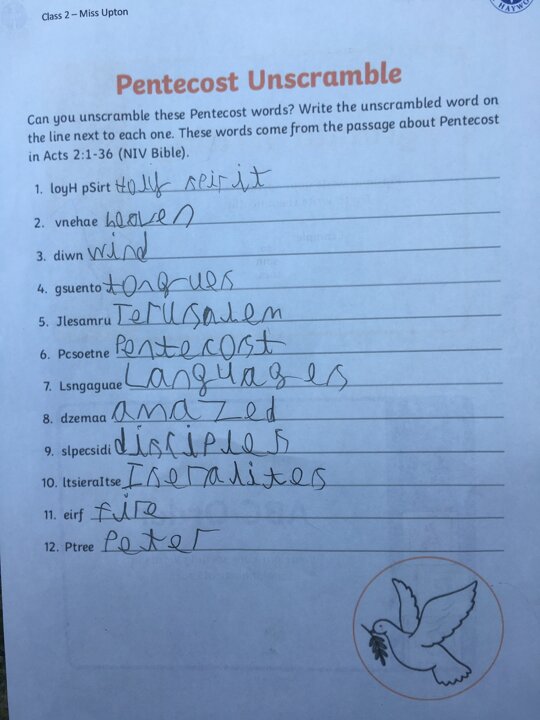 Class 2 – Miss Upton
HAYWO
Pentecost Unscramble
Can you unscramble these Pentecost words? Write the unscrambled word on
the line next to each one. These words come from the passage about Pentecost
in Acts 2:1-36 (NIV Bible).
1. loyH pSirt Holy spirit
2. vnehae heaven
3. diwn wind
4. gsuento tongues
5. Jlesamru Jerusalem
6. Pcsoetne Pentecost
7. Lsngaguae Languages
8. dzemaa amazed
9. slpecsidi disciples
10. ltsieraItse Iseralites
11. eirf fire
12. Ptree Peter